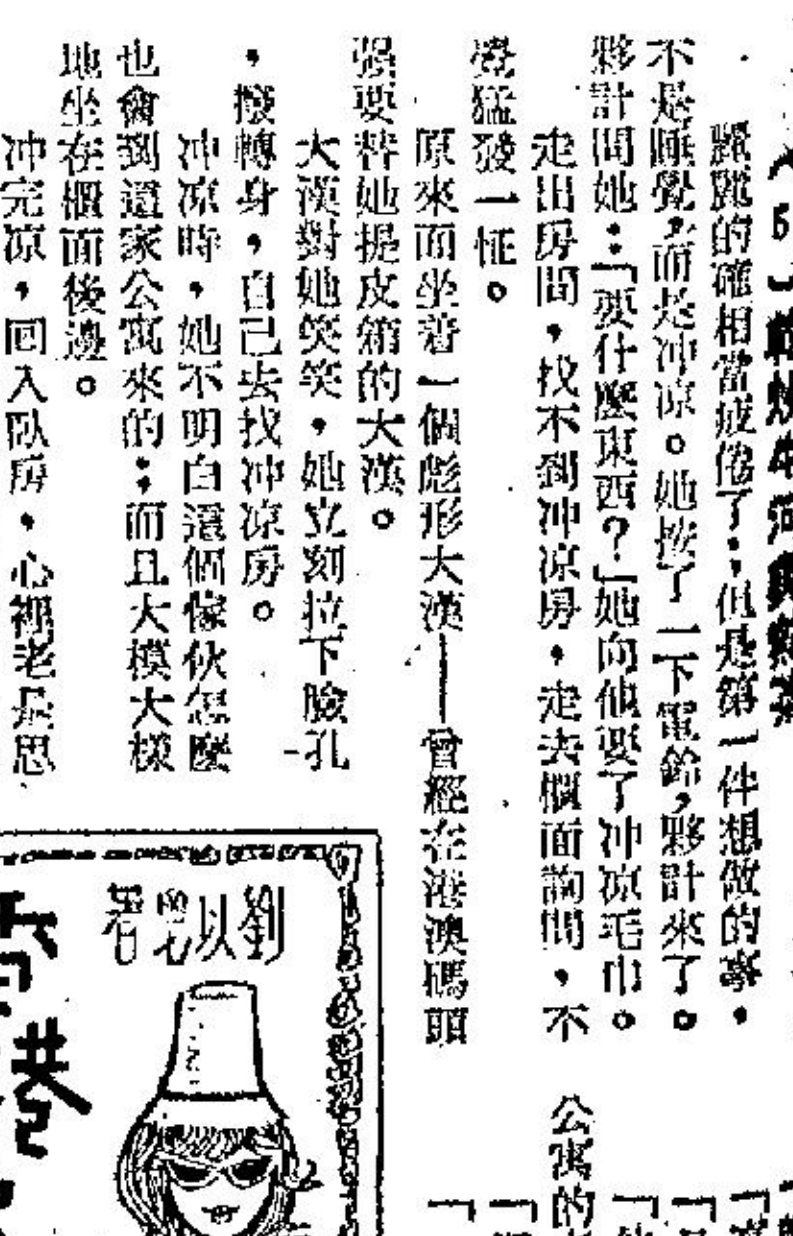 麗麗的確相當疲倦了;但是第一件想做的事,
不是睡覺,而是冲凉。她按了一下電鈴,夥計來了。
夥計問她:「要什麼東西?」她向他要了冲凉毛巾。
走出房間,找不到冲凉房,走去櫃面詢問,不
覺猛發一怔。
原來面坐着一個彪形大漢——曾經在港澳碼頭
强要替她提皮箱的大漢。
大漢對她笑笑,她立刻拉下臉孔
,撥轉身,自己去找冲凉房。
冲凉時,她不明白這個傢伙怎麼
也會到這家公寓來的;而且大模大樣
地坐在櫃面後邊。
冲完凉,回入臥房,心裡老是思
公寓的
劉以鬯著
香港